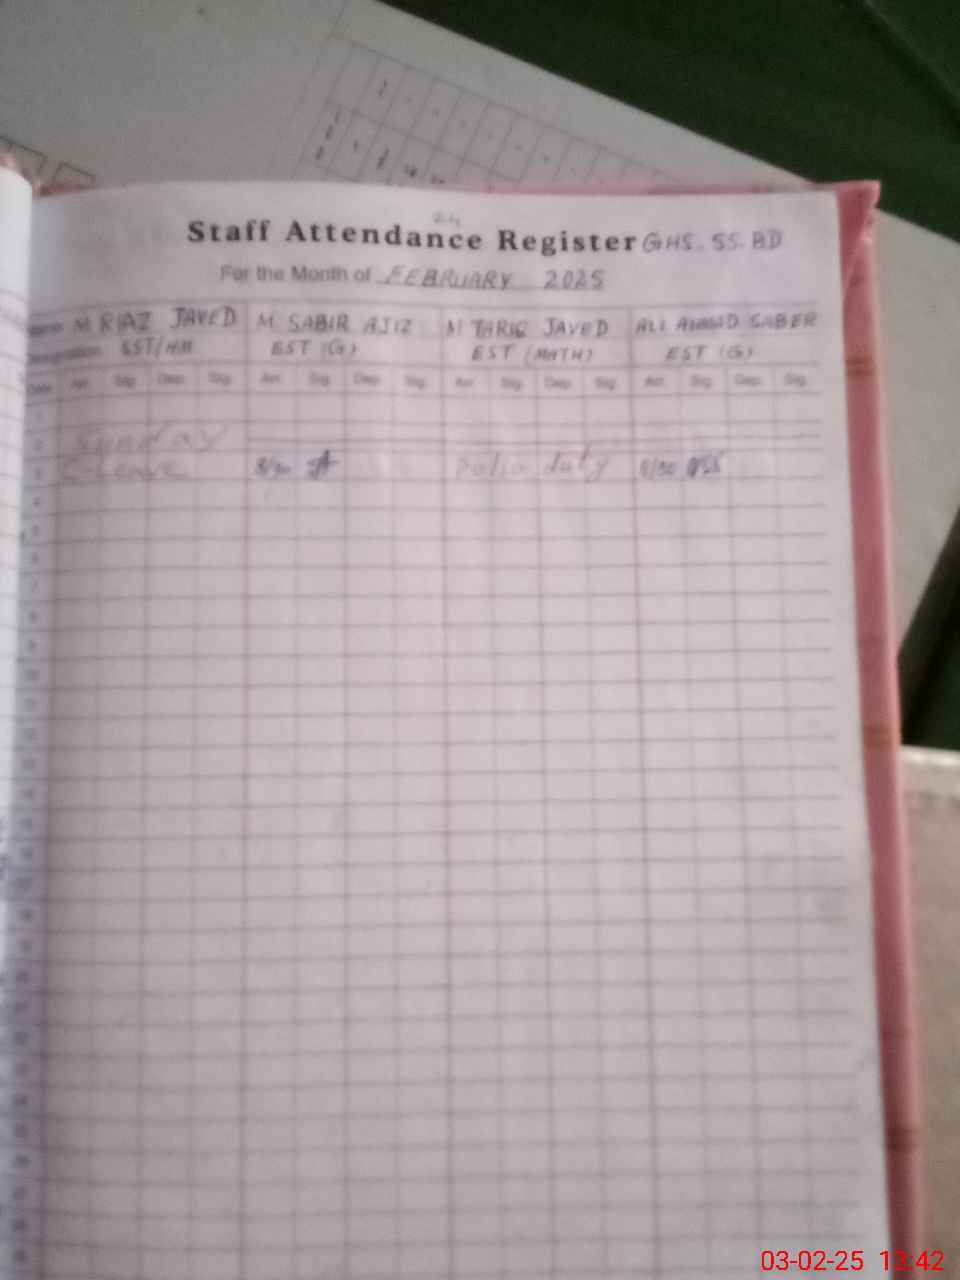 24
Staff Attendance Register GHS. 55. BD
For the Month of FEBRUARY 2025
Name M RIAZ JAVED M SABIR AJIZ M TARIQ JAVED ALI AHMAD SABER
Designation EST/HM EST (G) EST (MATH) EST (G)
Date Arr. Sig. Dep. Sig. Arr. Sig. Dep. Sig. Arr. Sig. Dep. Sig. Arr. Sig. Dep. Sig.
1
2 Sunday
3 C-leave 8/30 Polio duty 8/30
4
5
6
7
8
9
10
11
12
13
14
15
16
17
18
19
20
21
22
23
24
25
26
27
28
03-02-25 13:42